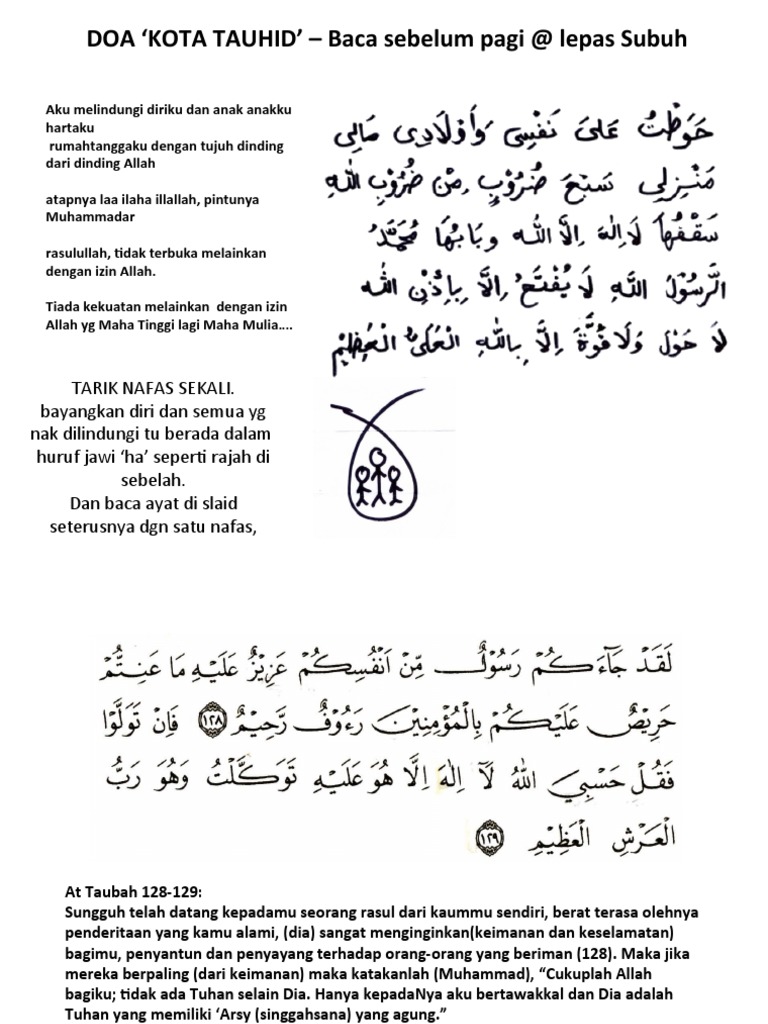 DOA ‘KOTA TAUHID’ – Baca sebelum pagi @ lepas Subuh
Aku melindungi diriku dan anak anakku
hartaku
rumahtanggaku dengan tujuh dinding
dari dinding Allah
atapnya laa ilaha illallah, pintunya
Muhammadar
rasulullah, tidak terbuka melainkan
dengan izin Allah.
Tiada kekuatan melainkan dengan izin
Allah yg Maha Tinggi lagi Maha Mulia....
حَوَّطْتُ عَلَىٰ نَفْسِي وَأَوْلَادِي مَالِي
مَنْزِلِي سَبْعَ ضُرُوْبٍ مِنْ ضُرُوْبِ اللهِ
سَقْفُهَا لَا إِلٰهَ إِلَّا اللهُ وَبَابُهَا مُحَمَّدُ
الرَّسُوْلُ اللهِ لَا يُفْتَحُ إِلَّا بِإِذْنِ اللهِ
لَا حَوْلَ وَلَا قُوَّةَ إِلَّا بِاللهِ الْعَلِيِّ الْعَظِيْمِ
TARIK NAFAS SEKALI.
bayangkan diri dan semua yg
nak dilindungi tu berada dalam
huruf jawi ‘ha’ seperti rajah di
sebelah.
Dan baca ayat di slaid
seterusnya dgn satu nafas,
لَقَدْ جَآءَكُمْ رَسُوْلٌ مِّنْ اَنْفُسِكُمْ عَزِيْزٌ عَلَيْهِ مَا عَنِتُّمْ
حَرِيْصٌ عَلَيْكُمْ بِالْمُؤْمِنِيْنَ رَءُوْفٌ رَّحِيْمٌ ۝١٢٨ فَاِنْ تَوَلَّوْا
فَقُلْ حَسْبِيَ اللهُ لَآ اِلٰهَ اِلَّا هُوَ عَلَيْهِ تَوَكَّلْتُ وَهُوَ رَبُّ
الْعَرْشِ الْعَظِيْمِ ۝١٢٩
At Taubah 128-129:
Sungguh telah datang kepadamu seorang rasul dari kaummu sendiri, berat terasa olehnya
penderitaan yang kamu alami, (dia) sangat menginginkan(keimanan dan keselamatan)
bagimu, penyantun dan penyayang terhadap orang-orang yang beriman (128). Maka jika
mereka berpaling (dari keimanan) maka katakanlah (Muhammad), “Cukuplah Allah
bagiku; tidak ada Tuhan selain Dia. Hanya kepadaNya aku bertawakkal dan Dia adalah
Tuhan yang memiliki ‘Arsy (singgahsana) yang agung.”